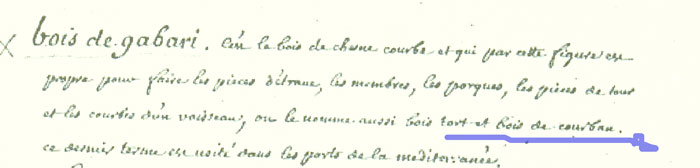 bois de gabari. C'est le bois de chesne courbe et qui par cette figure est
propre pour faire les pieces d'etraue, les membres, les porques, les pieces de tour
et les courbes d'un vaisseau, on le nomme aussi bois tort et bois de courban.
ce dernier terme est usité dans les ports de la mediterranée.